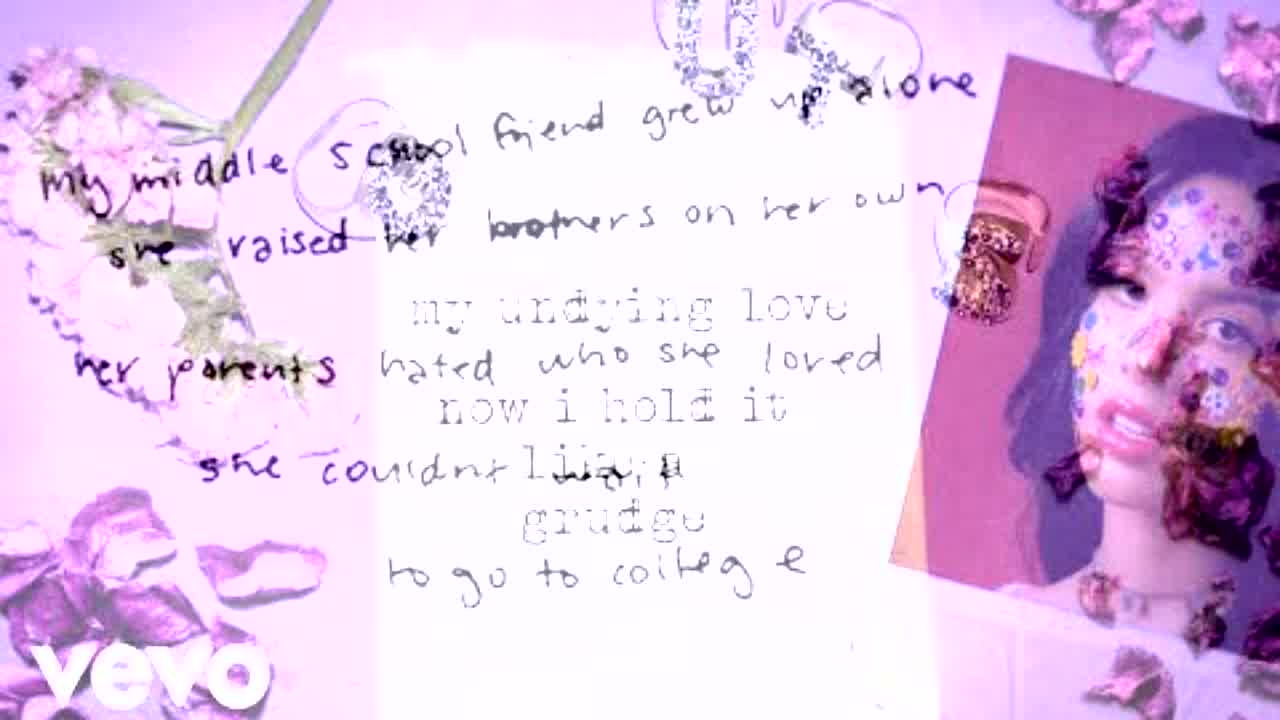 my middle school friend grew up alone
she raised her brothers on her own
my undying love
her parents hated who she loved
now i hold it
she couldnt
grudge
to go to college
vevo